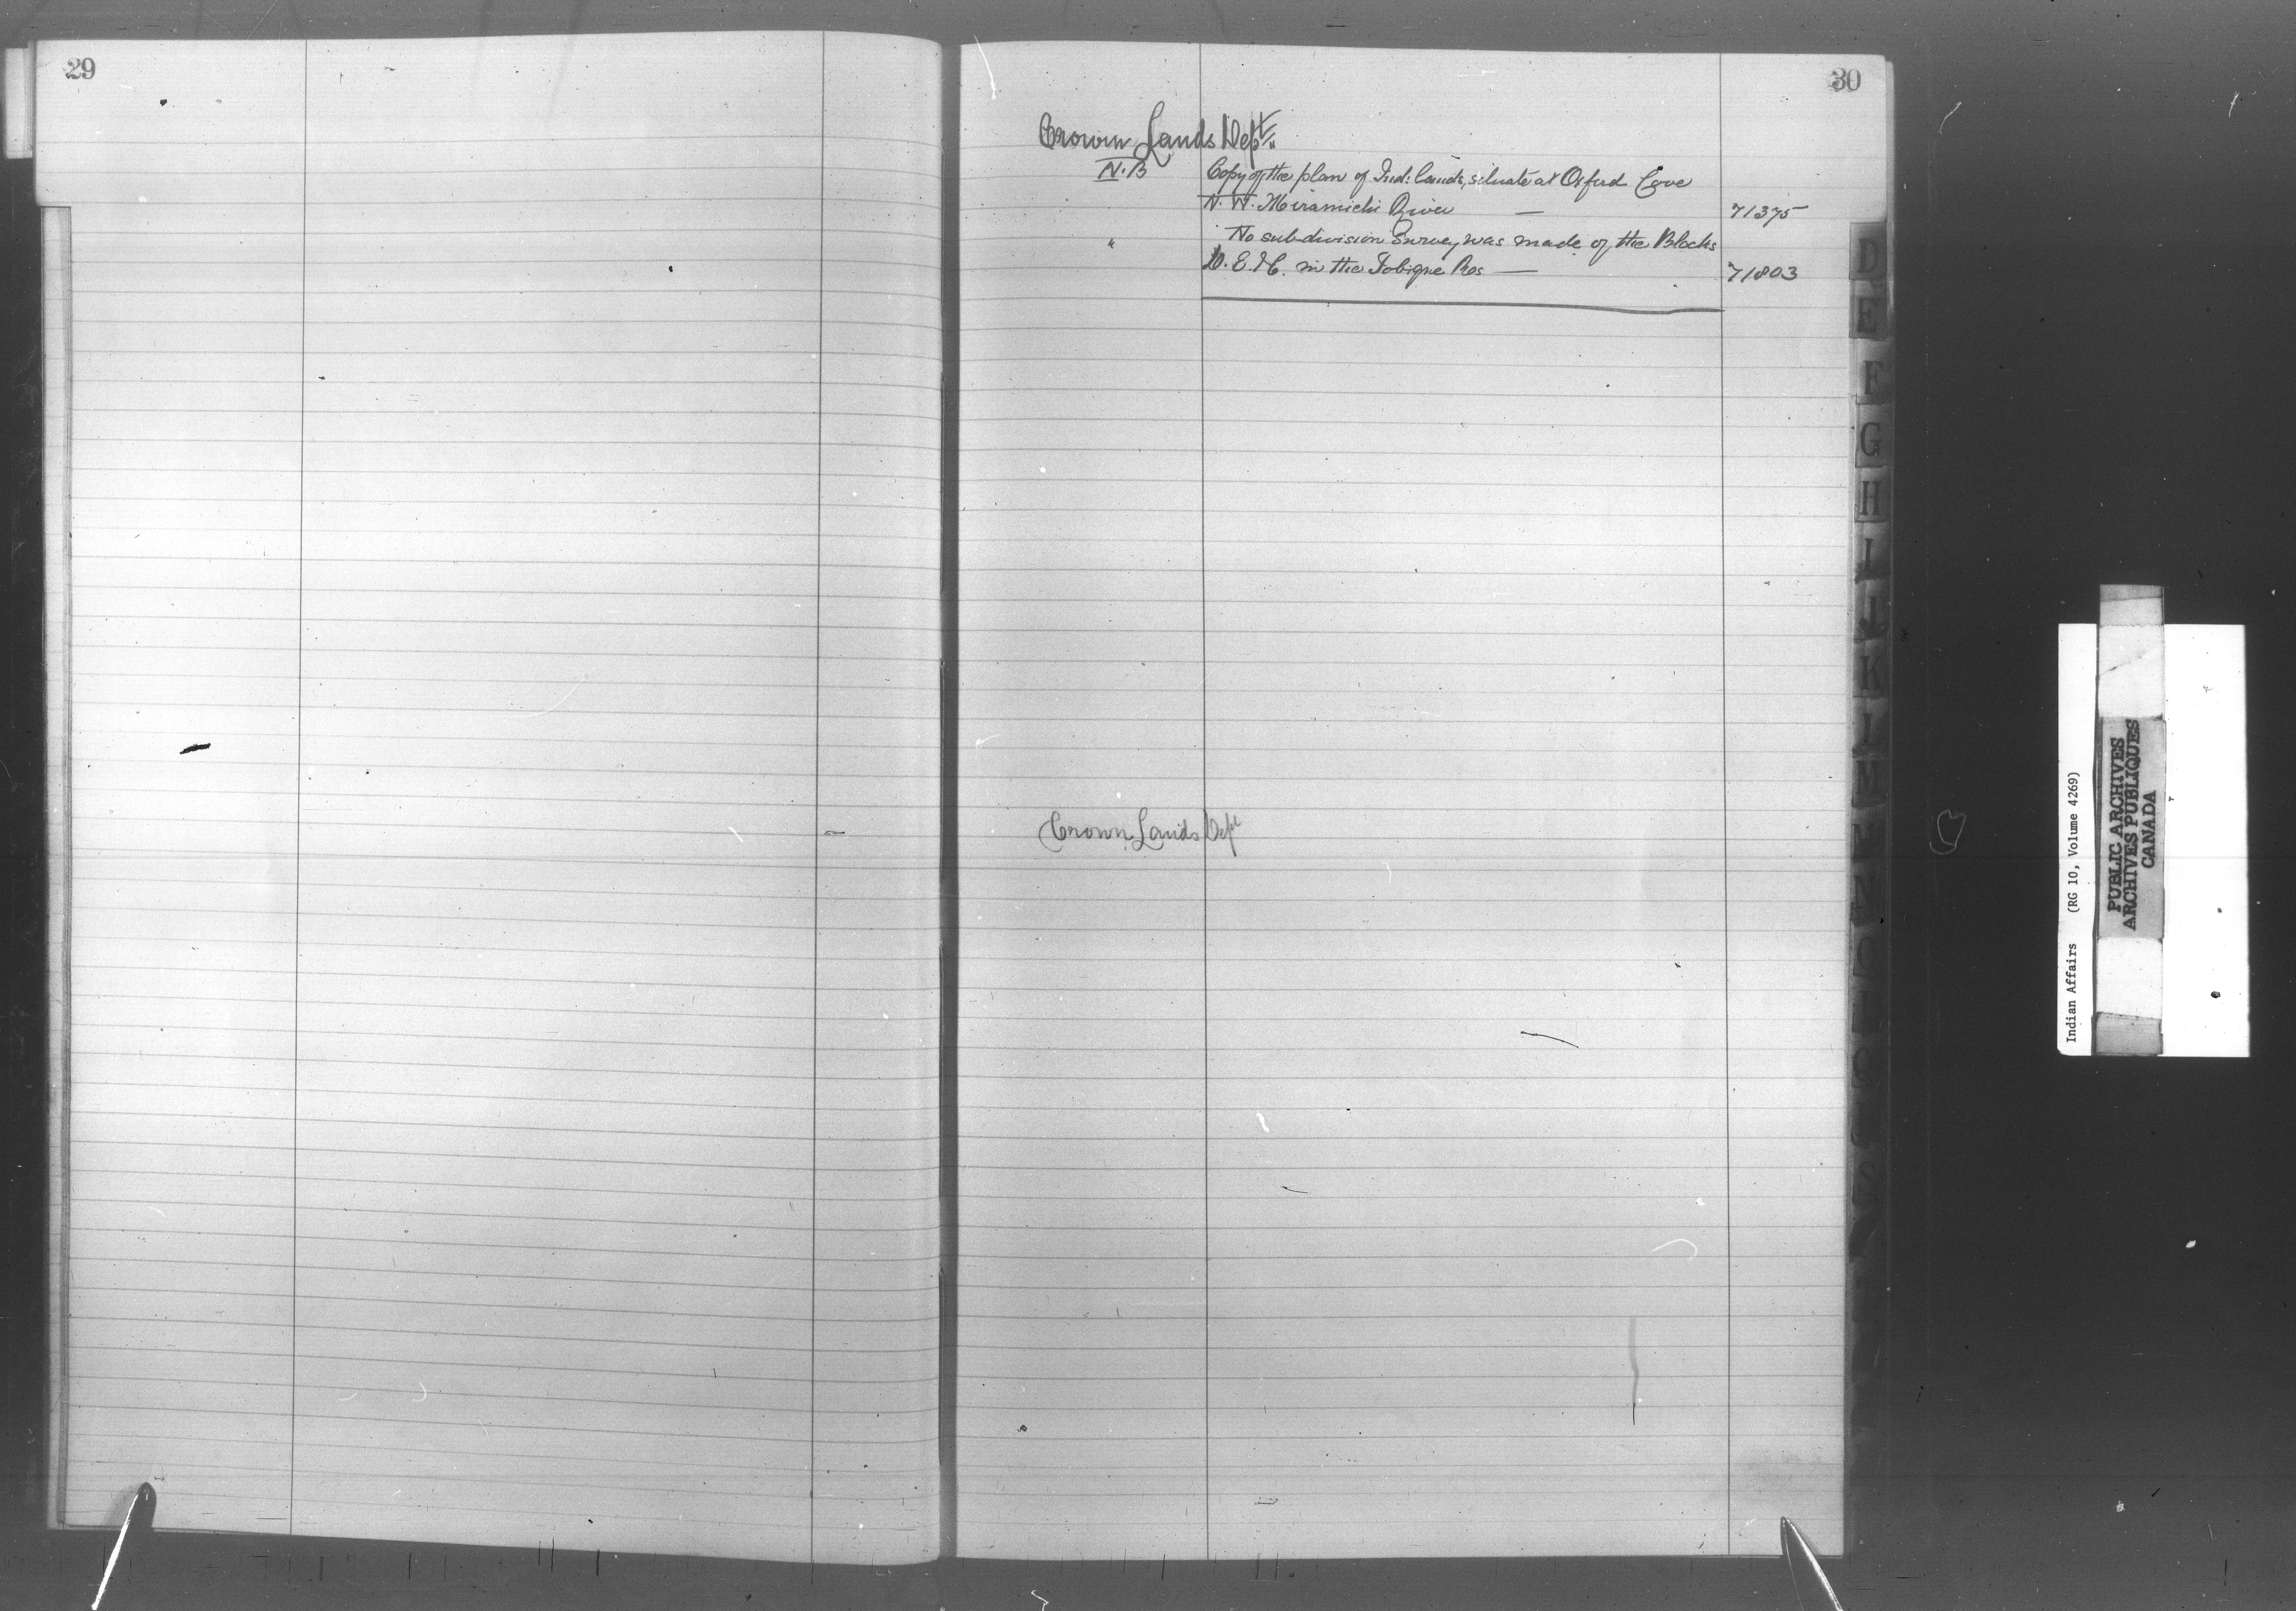 29
30
Crown Lands Dept.
N.B Copy of the plan of Ind: lands, situate at Oxford Cove
N. W. Miramichi River — 71375
" No subdivision Survey was made of the Blocks
D. E. & C. in the Tobique Res — 71803
Crown Lands Dept
D
E
F
G
H
I
J
K
L
M
N
O
Q
S
Indian Affairs (RG 10, Volume 4269)
PUBLIC ARCHIVES
ARCHIVES PUBLIQUES
CANADA